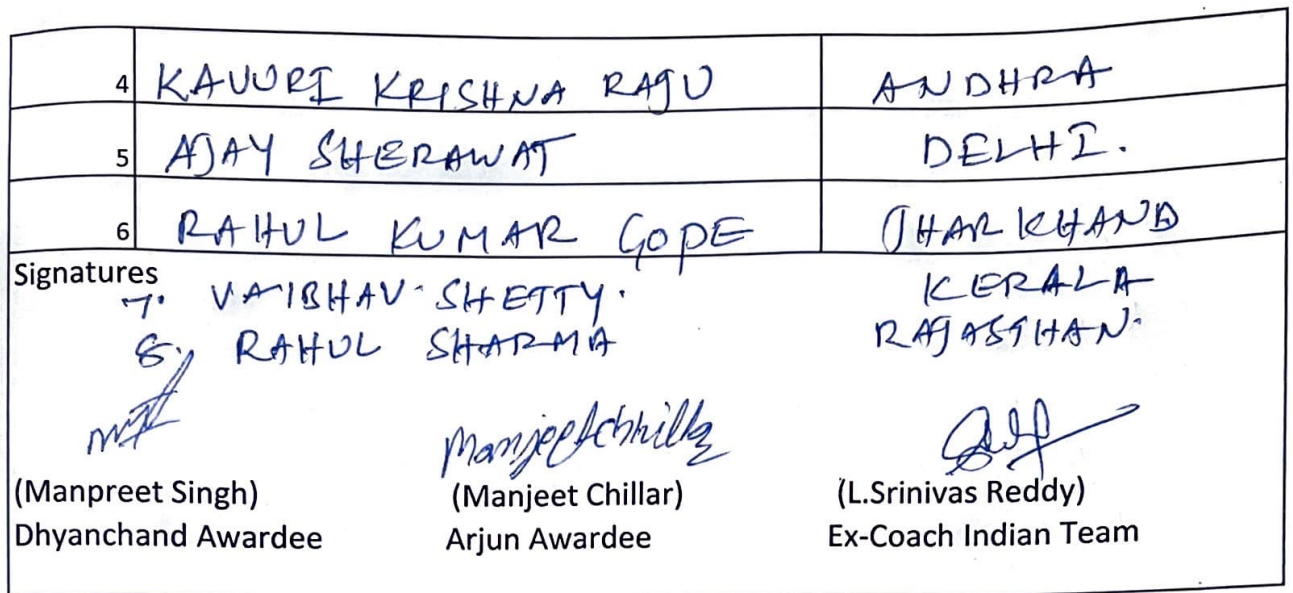 4 KAVURI KRISHNA RAJU ANDHRA
5 AJAY SHERAWAT DELHI.
6 RAHUL KUMAR GOPE JHARKHAND
Signatures
7. VAIBHAV SHETTY. KERALA
8. RAHUL SHARMA RAJASTHAN.
Manjeet Chhillar
(Manpreet Singh) (Manjeet Chillar) (L.Srinivas Reddy)
Dhyanchand Awardee Arjun Awardee Ex-Coach Indian Team